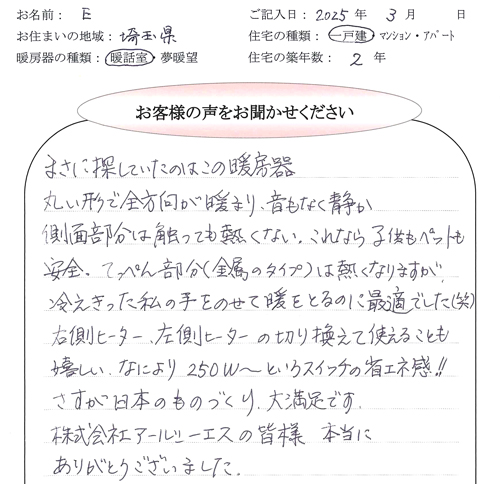 お名前： E　ご記入日： 2025 年 3 月 日
お住まいの地域： 埼玉県　住宅の種類： 一戸建・マンション・アパート
暖房器の種類： 暖話室・夢暖望　住宅の築年数： 2 年
お客様の声をお聞かせください
まさに探していたのはこの暖房器
丸い形で全方向が暖まり、音もなく静か
側面部分は触っても熱くない。これなら子供もペットも
安全。てっぺん部分(金属のタイプ)は熱くなりますが、
冷えきった私の手をのせて暖をとるのに最適でした(笑)
右側ヒーター、左側ヒーターの切り換えて使えることも
嬉しい。なにより250W〜というスイッチの省エネ感!!
さすが日本のものづくり、大満足です。
株式会社アールシーエスの皆様 本当に
ありがとうございました。